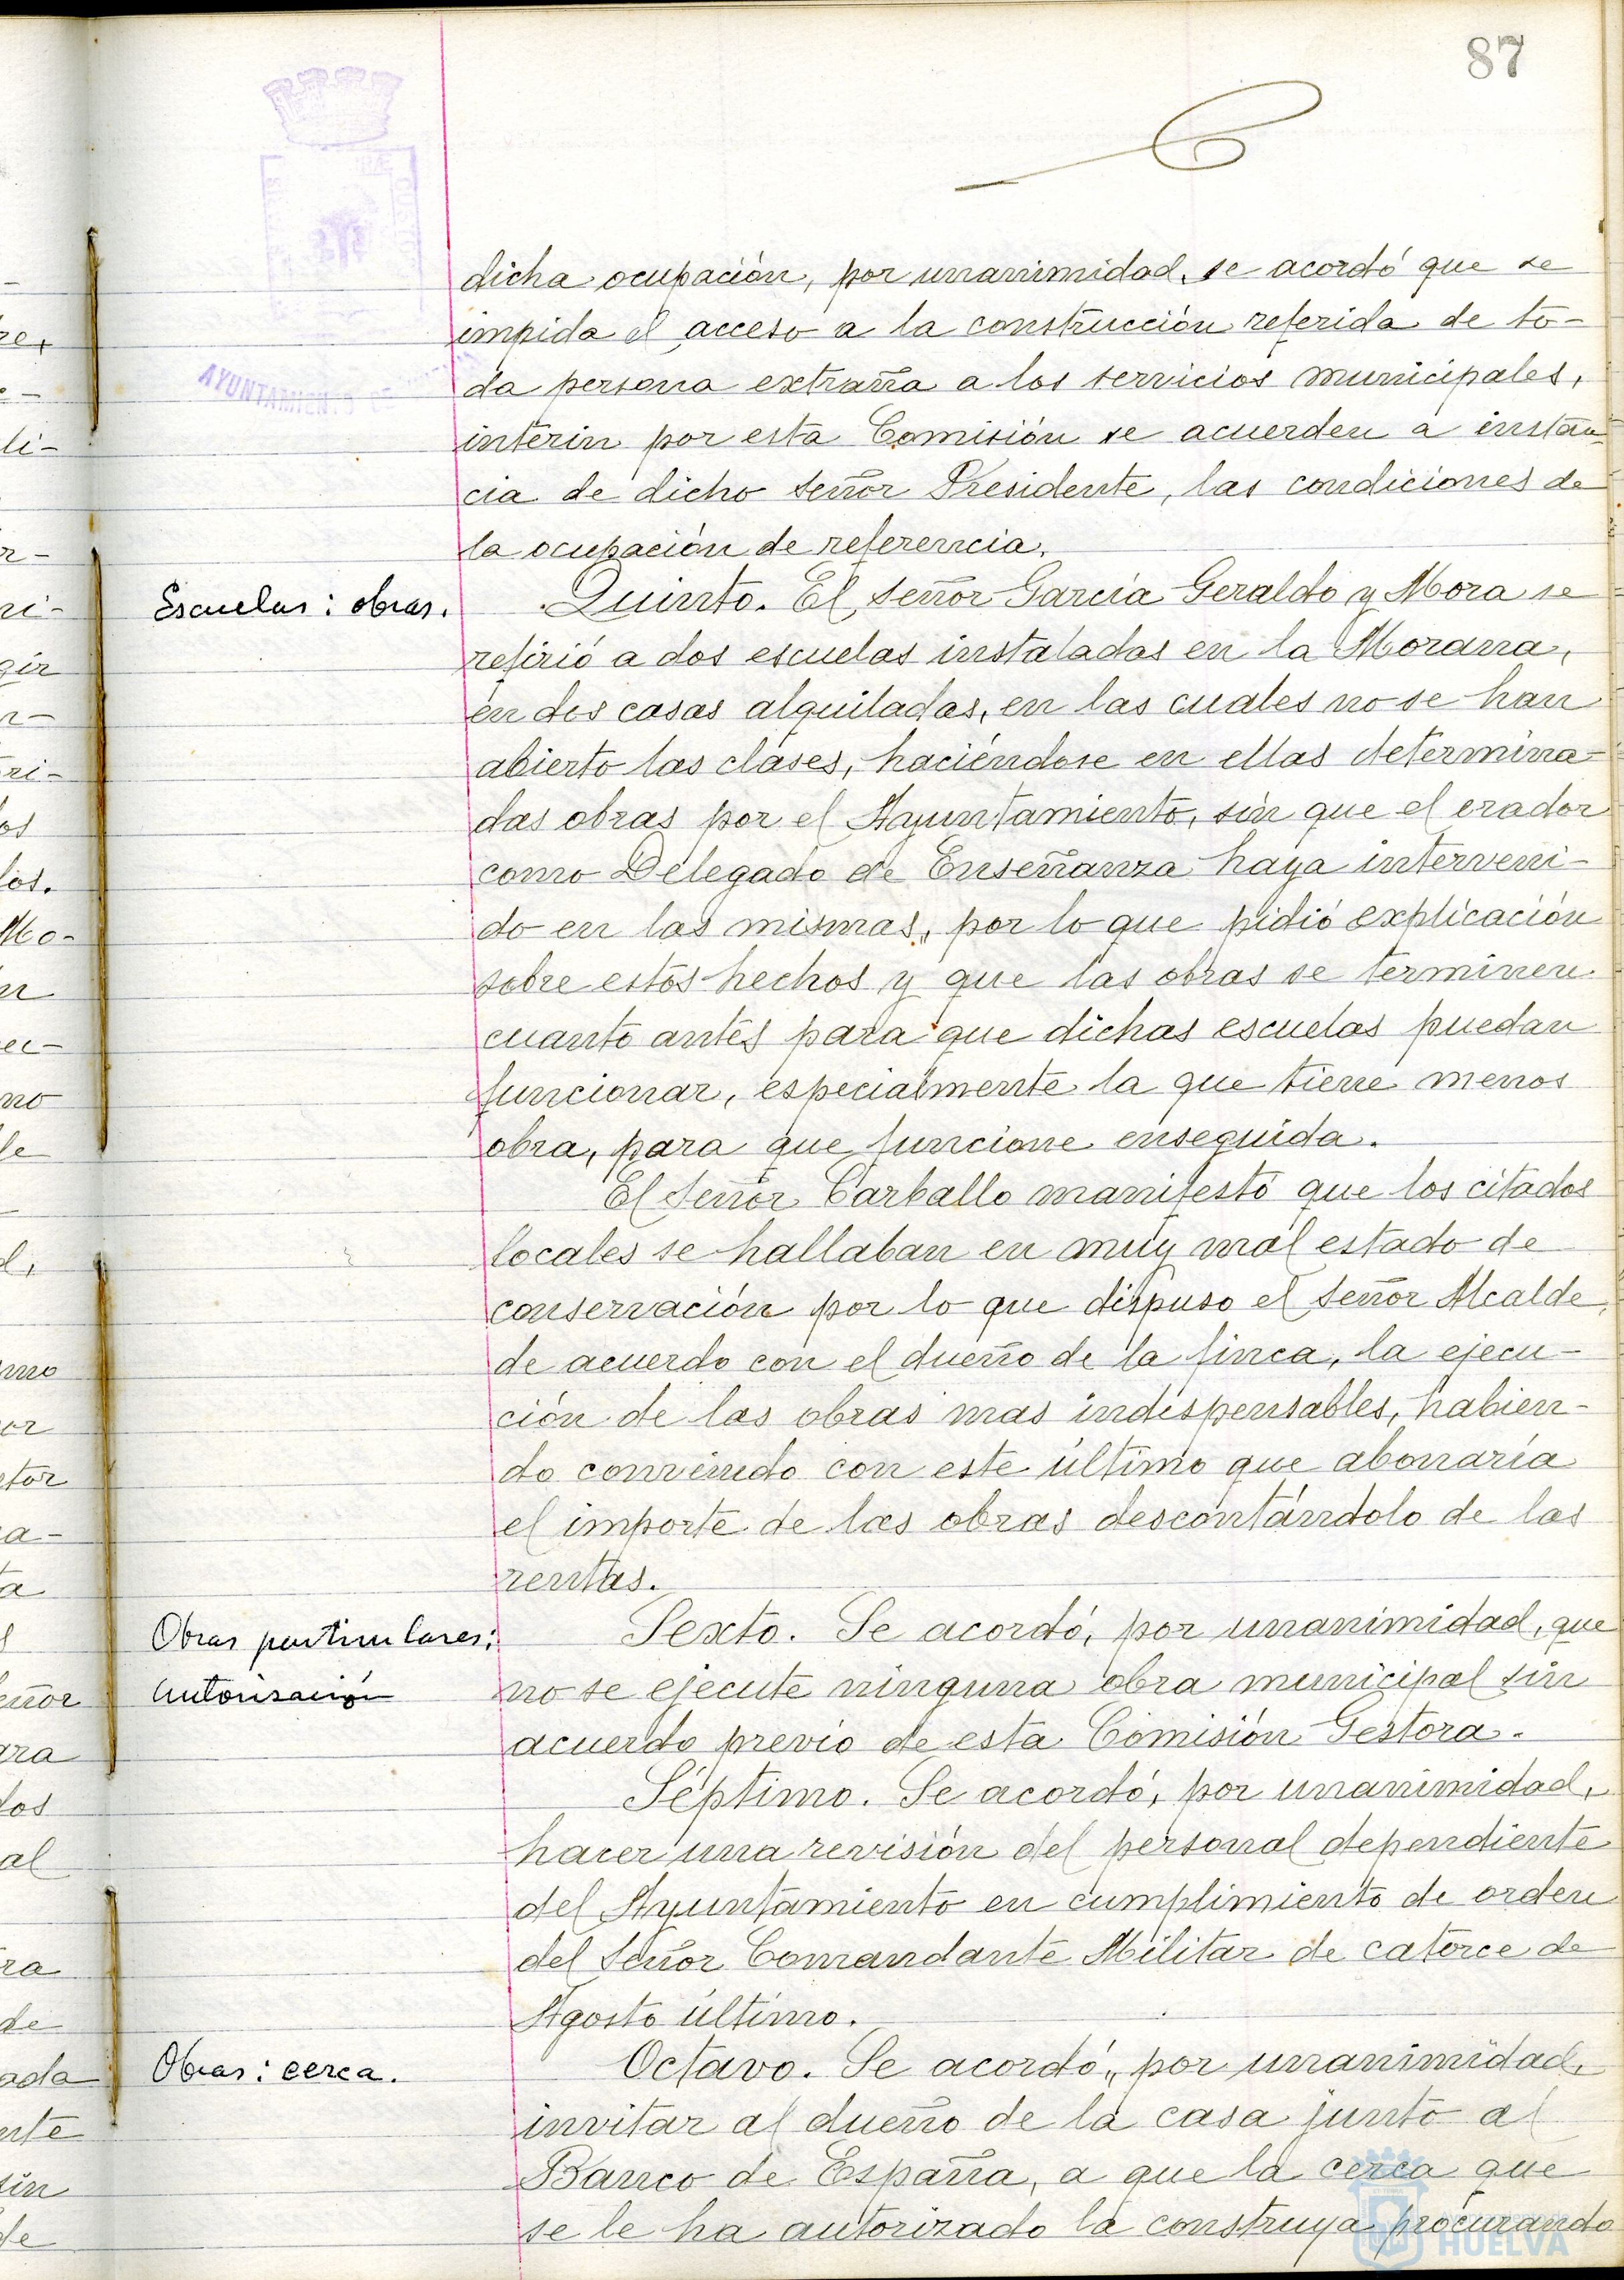 87
dicha ocupación, por unanimidad, se acordó que se
impida el acceso a la construcción referida de to-
da persona extraña a los servicios municipales,
AYUNTAMIENTO DE
interin por esta Comisión se acuerden a instan-
cia de dicho señor Presidente, las condiciones de
la ocupación de referencia.
Escuelas: obras.
Quinto. El señor García Geraldo y Mora se
refirió a dos escuelas instaladas en la Morana,
en dos casas alquiladas, en las cuales no se han
abierto las clases, haciéndose en ellas determina-
das obras por el Ayuntamiento, sin que el orador
como Delegado de Enseñanza haya interveni-
do en las mismas, por lo que pidió explicación
sobre estos hechos y que las obras se terminen
cuanto antes para que dichas escuelas puedan
funcionar, especialmente la que tiene menos
obra, para que funcione enseguida.
El señor Carballo manifestó que los citados
locales se hallaban en muy mal estado de
conservación por lo que dispuso el señor Alcalde,
de acuerdo con el dueño de la finca, la ejecu-
ción de las obras mas indispensables, habien-
do convenido con este último que abonaría
el importe de las obras descontándolo de las
rentas.
Obras particulares:
autorización
Sexto. Se acordó, por unanimidad, que
no se ejecute ninguna obra municipal sin
acuerdo previo de esta Comisión Gestora.
Séptimo. Se acordó, por unanimidad,
hacer una revisión del personal dependiente
del Ayuntamiento en cumplimiento de orden
del señor Comandante Militar de catorce de
Agosto último.
Obras: cerca.
Octavo. Se acordó, por unanimidad,
invitar al dueño de la casa junto al
Banco de España, a que la cerca que
se le ha autorizado la construya procurando
HUELVA